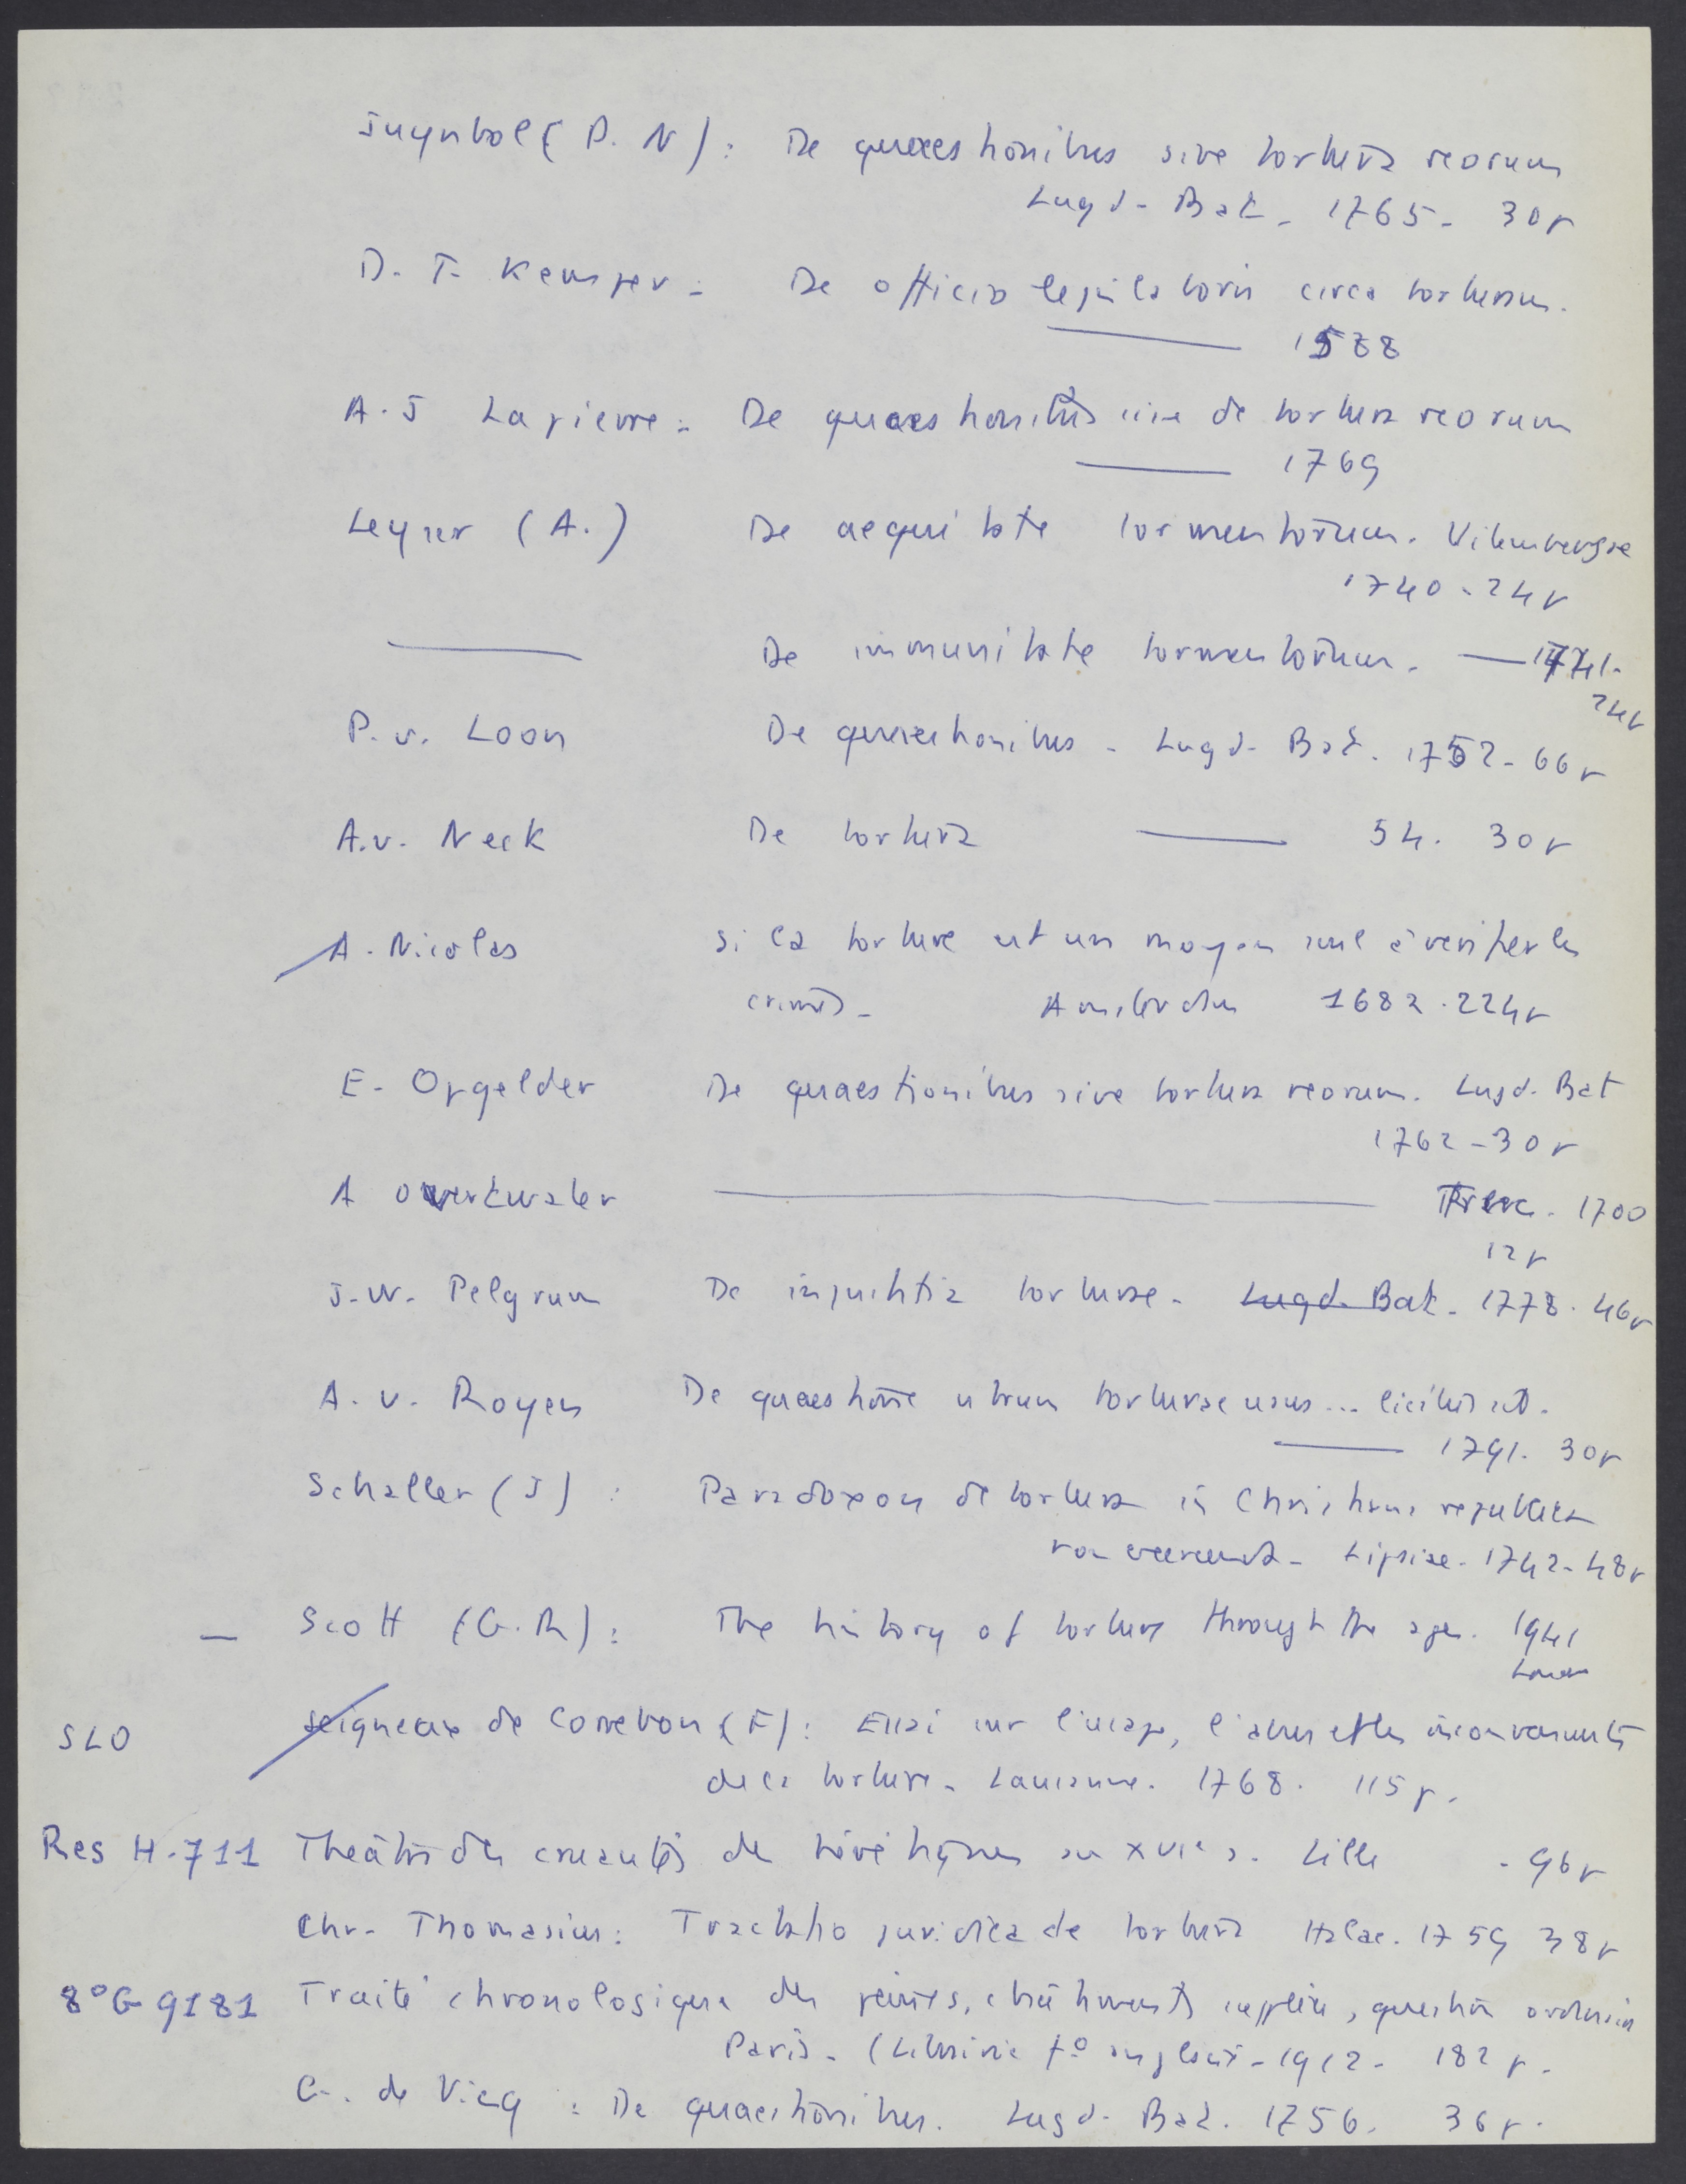 Juynbol (P. N) : De quaestionibus sive tortura reorum
Lugd. Bat. 1765. 30p
D. T. Kemper : De officio legislatoris circa torturam.
——— 1588
A. J Lapierre : De quaestionibus sive de tortura reorum
——— 1769
Leyser (A.) De aequitate tormentorum. Vitembergae
1740. 24p
——— De immunitate tormentorum. — 1741.
24p
P. v. Loon De quaestionibus. Lugd. Bat. 1752. 66p
A. v. Neck De tortura ——— 54. 30p
A. Nicolas Si la torture est un moyen seul à verifier les
crimes. Amsterdam 1682. 224p
E. Opgelder De quaestionibus sive tortura reorum. Lugd. Bat
1762 - 30p
A Overtwater ——— 1700
12p
J. W. Pelgrum De injustitia torturae. Lugd. Bat. 1778. 46p
A. v. Royen De quaestione utrum torturae usus... licitus sit.
——— 1791. 30p
Schaller (J) : Paradoxon de tortura in Christiana republica
non exercenda. Lipsiae. 1742. 48p
— Scott (G. R) : The history of torture through the ages. 1941
London
SLO Seigneux de Correvon (F) : Essai sur l'usage, l'abus et les inconvenients
de la torture. Lausanne. 1768. 115 p.
Res H. 711 Théâtre des cruautés des hérétiques au XVIe s. Lille . 96p
Chr. Thomasius : Tractatio juridica de tortura Halae. 1759 38p
8° G 9181 Traité chronologique des peines, châtiments supplices, question ordinaire
Paris. (Librairie fo anglaise - 1912. 182 p.
C. de Vicq : De quaestionibus. Lugd. Bat. 1756. 36 p.